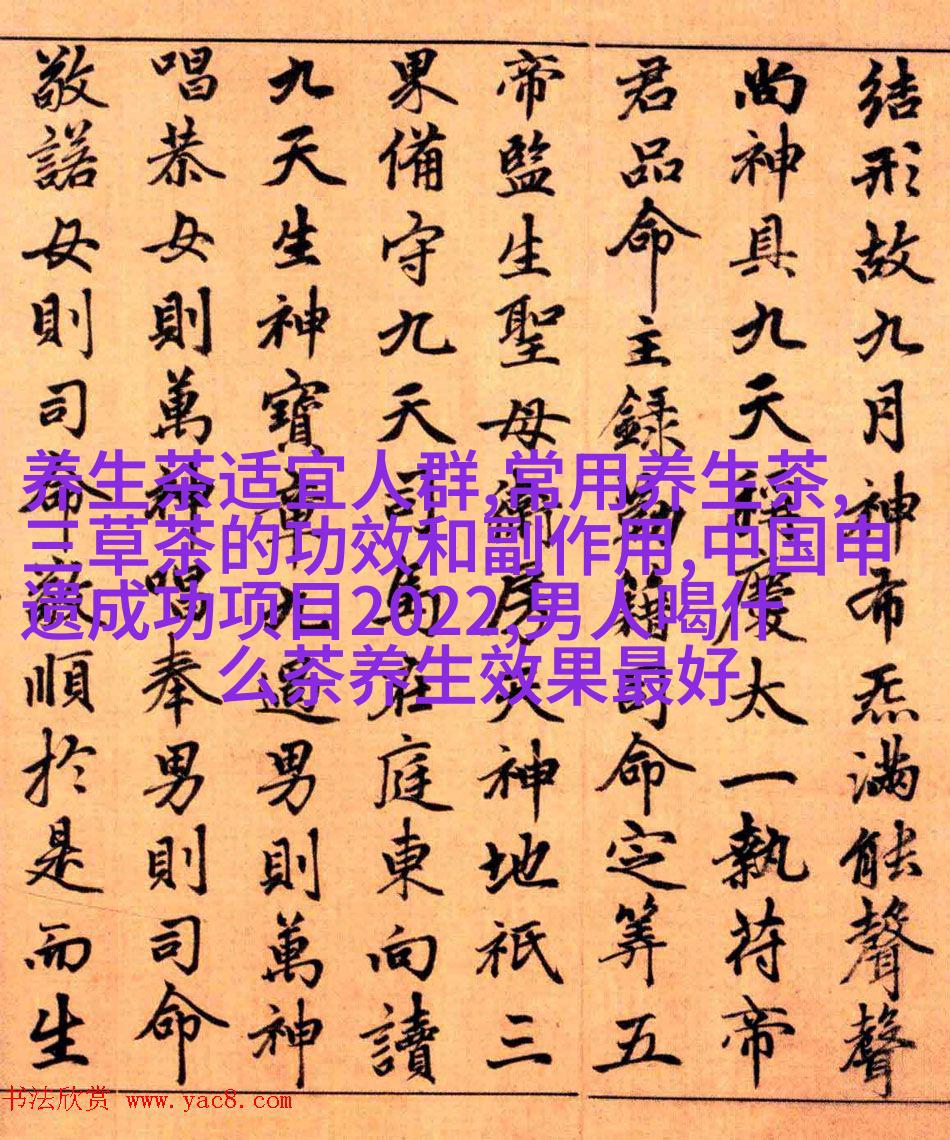 結形故九月神布炁滿能聲聲
尚神具九天稱慶太一執苻帝
君品命主錄勒籍司命定筭五
帝監生聖母衛房天神地祇三
果備守九天司馬在庭東向讀
九天生神寶章九過男則萬神
唱恭女則萬神唱奉男則司命
敬諾女則司命敬順於是而生
养生茶适宜人群,常用养生茶,
三草茶的功效和副作用,中国申
遗成功项目2022,男人喝什
么茶养生效果最好
书法欣赏 www.yac8.com